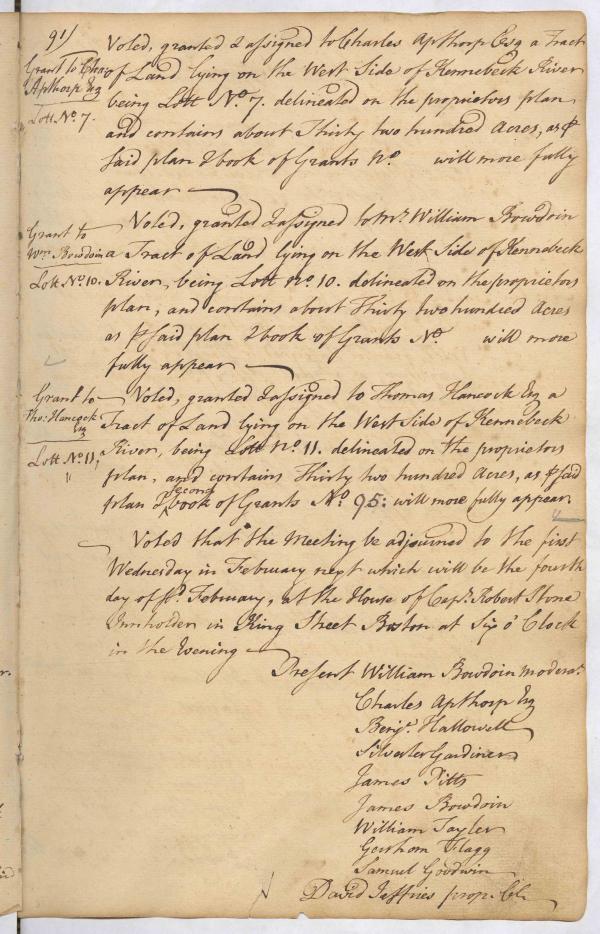 91/
Voted, granted & assigned to Charles Apthorp Esq a Tract
Grant to Chas
Apthorp Esq
Lott No. 7.
of Land lying on the West Side of Kennebeck River
being Lott No. 7. delineated on the proprietors plan,
and contains about Thirty two hundred Acres, as ⅌
said plan & book of Grants No. will more fully
appear
Grant to
Wm. Bowdoin
Lott No. 10.
Voted, granted & assigned to Mr. William Bowdoin
a Tract of Land lying on the West Side of Kennebeck
River, being Lott No 10. delineated on the proprietors
plan, and contains about Thirty two hundred Acres
as ⅌ said plan & book of Grants No. will more
fully appear
Grant to
Tho: Hancock
Esq
Lott No. 11,
Voted, granted & assigned to Thomas Hancock Esq a
Tract of Land lying on the West Side of Kennebeck
River, being Lott No 11. delineated on the proprietors
plan, and contains Thirty two hundred Acres, as ⅌ said
plan & second book of Grants No. 95: will more fully appear
Voted that the Meeting be adjourned to the first
Wednesday in February next which will be the fourth
day of sd. February, at the House of Capt. Robert Stone
Innholder in King Street Boston at Six o' Clock
in the Evening
Present William Bowdoin moderr.
Charles Apthorp Esq
Benja. Hallowell
Silvester Gardiner
James Pitts
James Bowdoin
William Tayler
Gershom Flagg
Samuel Goodwin
David Jeffries prop. Cl.